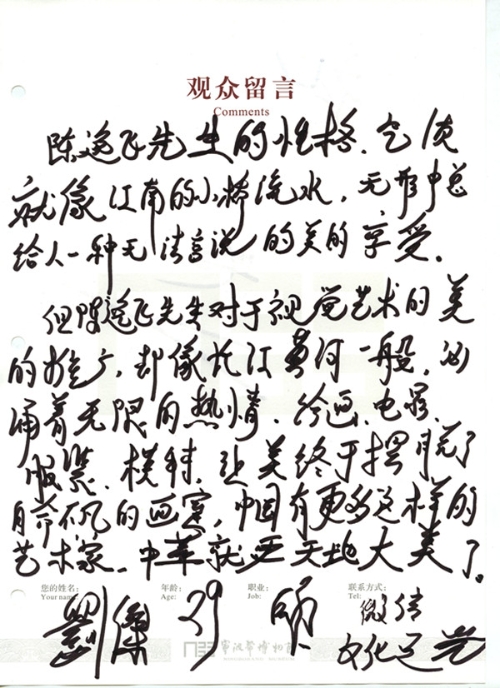 观众留言
Comments
陈逸飞先生的性格、气质
就像江南的小桥流水，无形中总
给人一种无法言说的美的享受。
但陈逸飞先生对于视觉艺术的美
的推广，却像长江黄河一般，汹
涌着无限的热情。绘画、电影、
服装、模特，让美终于摆脱了
的画室，中国有更多这样的
艺术家，中华就更天地大美了。
您的姓名：
Your name:
年龄：
Age:
职业：
Job:
联系方式：
Tel:
刘杰
39
微信
宁波帮博物馆
文化